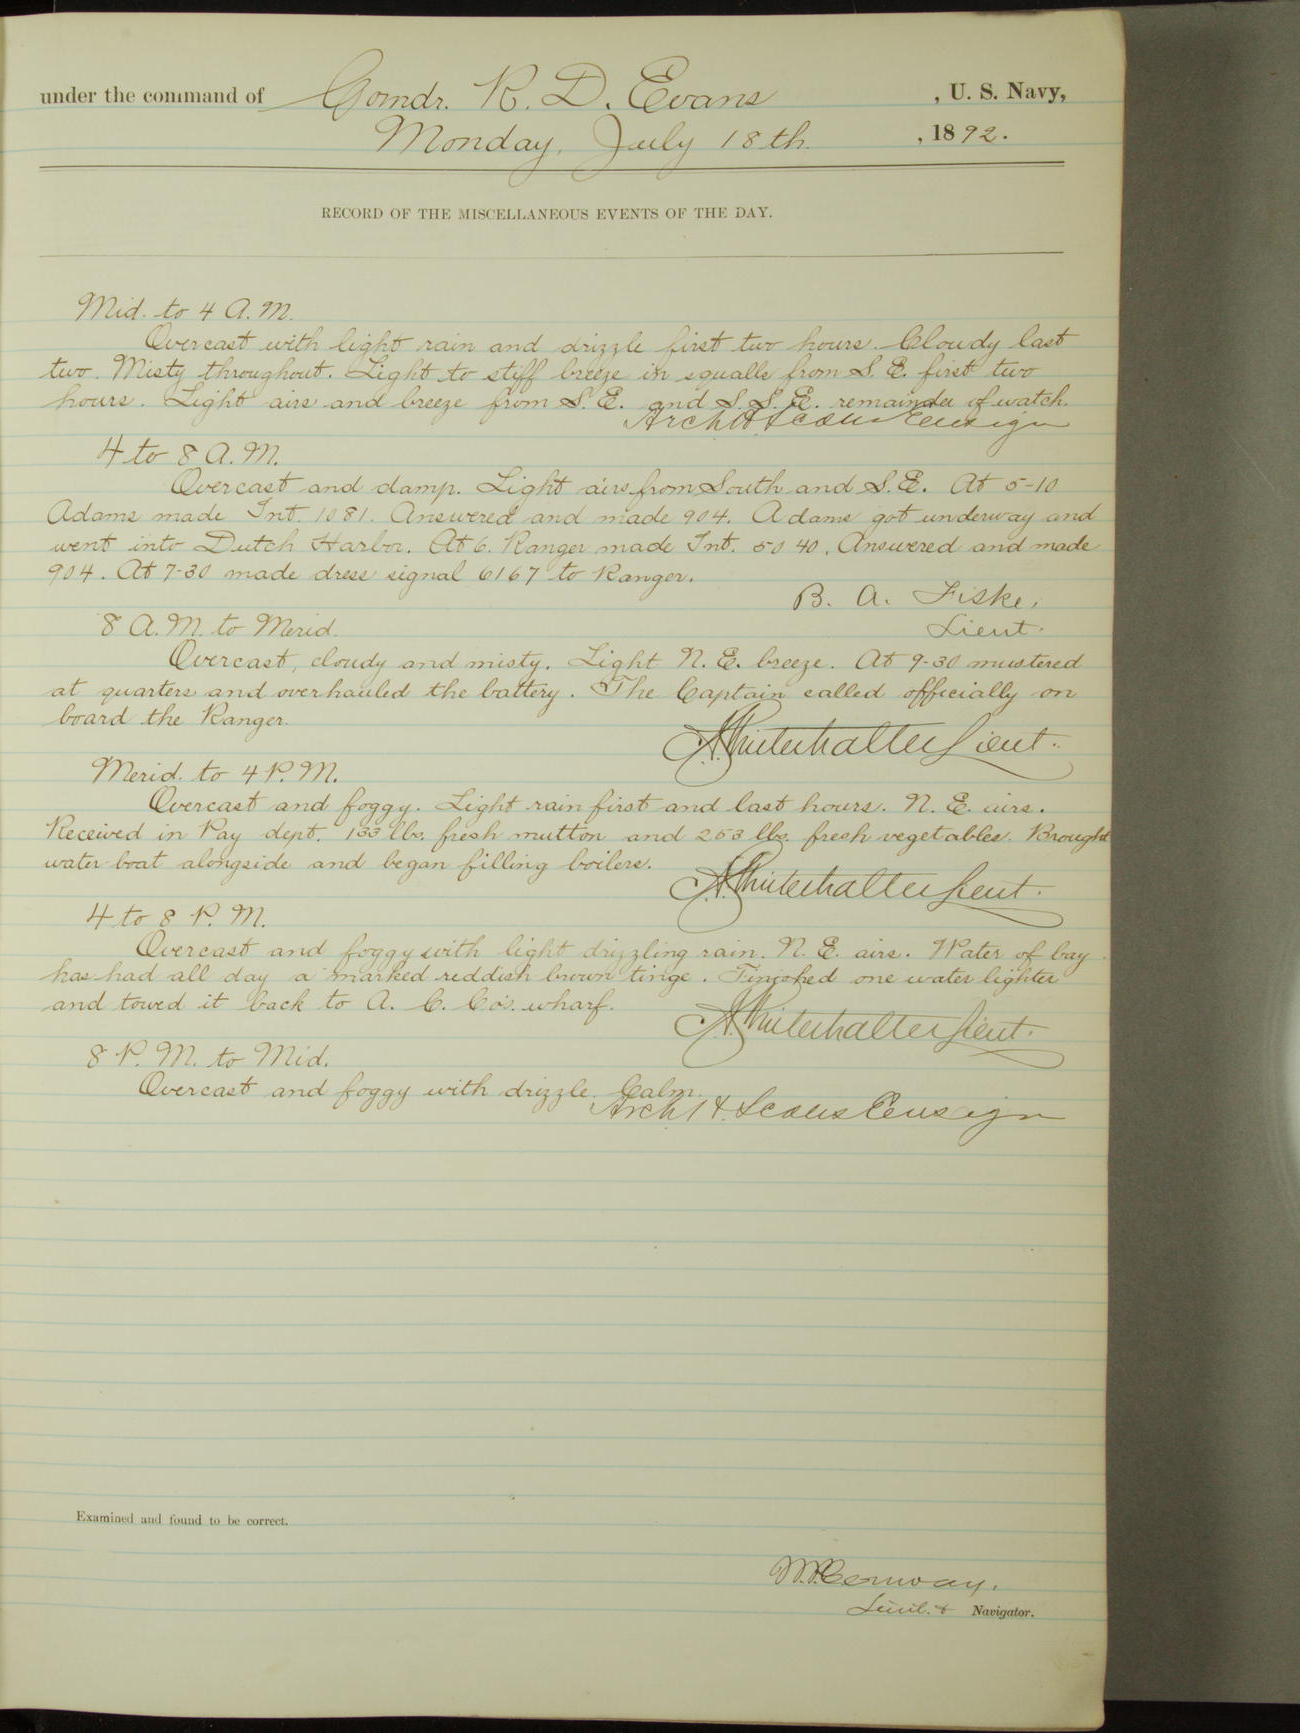 under the command of Comdr. R. D. Evans, U. S. Navy,
Monday, July 18th, 1892.
RECORD OF THE MISCELLANEOUS EVENTS OF THE DAY.
Mid. to 4 A.M.
Overcast with light rain and drizzle first two hours. Cloudy last
two. Misty throughout. Light to stiff breeze in squalls from S. E. first two
hours. Light airs and breeze from S. E. and S. S. E. remainder of watch.
Arch H. Scales Ensign
4 to 8 A.M.
Overcast and damp. Light airs from South and S. E. At 5-10
Adams made Int. 1081. Answered and made 904. Adams got underway and
went into Dutch Harbor. At 6. Ranger made Int. 5040. Answered and made
904. At 7-30 made dress signal 6167 to Ranger.
B. A. Fiske,
Lieut.
8 A.M. to Merid.
Overcast, cloudy and misty. Light N. E. breeze. At 9-30 mustered
at quarters and overhauled the battery. The Captain called officially on
board the Ranger.
A. G. Winterhalter Lieut.
Merid. to 4 P.M.
Overcast and foggy. Light rain first and last hours. N. E. airs.
Received in Pay dept. 133 lbs. fresh mutton and 253 lbs. fresh vegetables. Brought
water boat alongside and began filling boilers.
A. G. Winterhalter Lieut.
4 to 8 P. M.
Overcast and foggy with light drizzling rain. N. E. airs. Water of bay
has had all day a marked reddish brown tinge. Finished one water lighter
and towed it back to A. C. Co's. wharf.
A. G. Winterhalter Lieut.
8 P. M. to Mid.
Overcast and foggy with drizzle. Calm.
Arch H. Scales Ensign
Examined and found to be correct.
Conway.
Lieut. & Navigator.